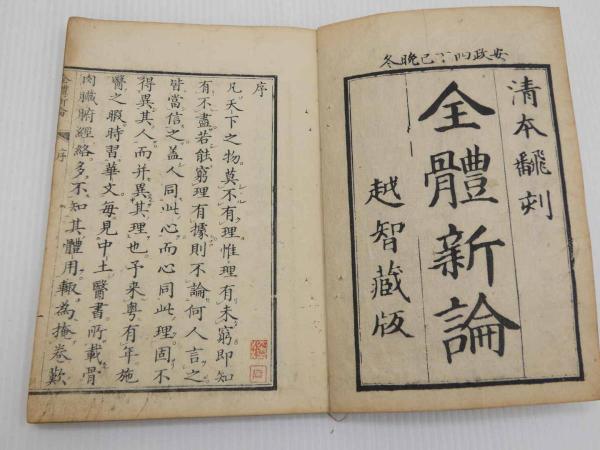 安政四丁巳晩冬
清本翻刻
全體新論
越智藏版
序
凡天下之物莫不有理惟理有未窮即知
有不盡若能窮理有據則不論何人言之
皆當信之蓋人同此心而心同此理固不
得異其人而并異其理也予來粤有年施
醫之暇時習華文每見中土醫書所載骨
肉臟腑經絡多不知其體用輙為掩卷歎
全體新論 序